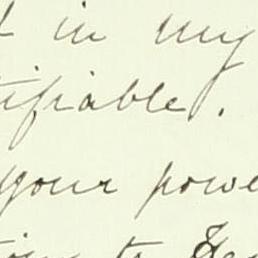 in my
tifiable.
your powe
to